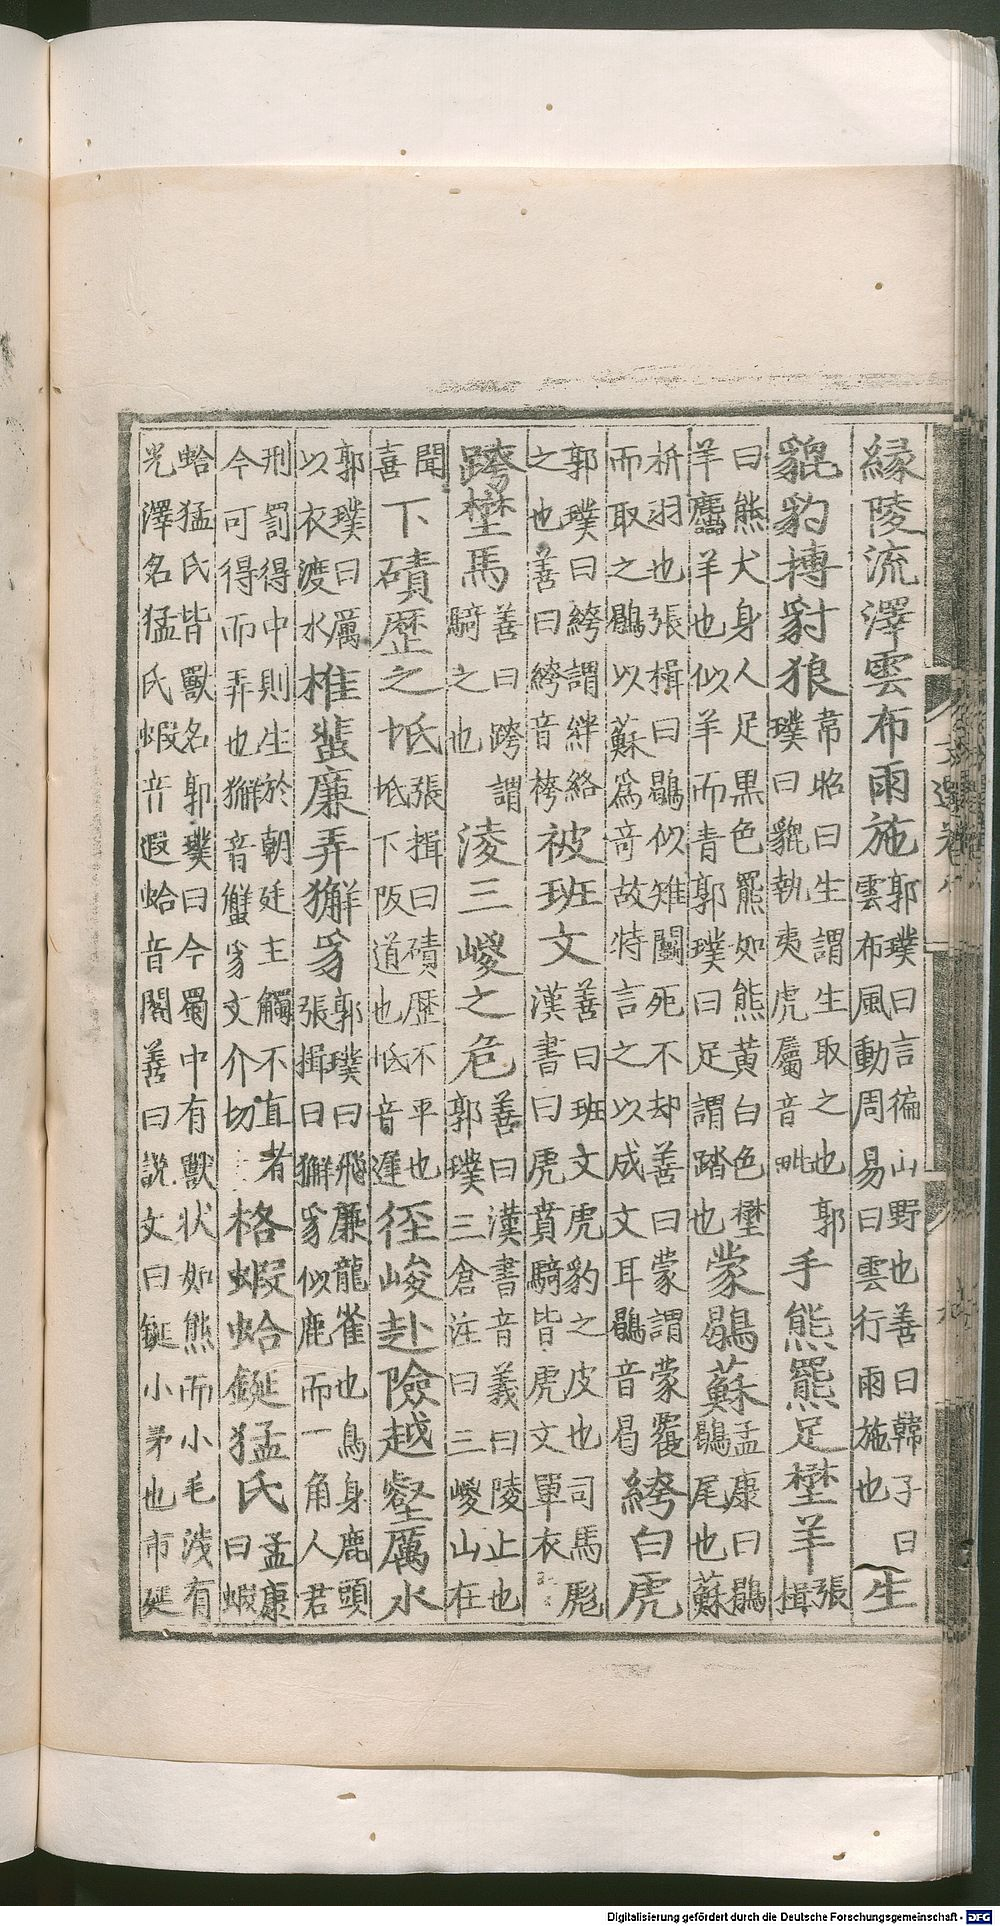 文選卷八 九
緣陵流澤雲布雨施郭璞曰言徧山野也善曰韓子曰雲布風動周易曰雲行雨施也生
貔豹搏豺狼韋昭曰生謂生取之也郭璞曰貔執夷虎屬音毗手熊羆足壄羊張揖
曰熊犬身人足黑色羆如熊黄白色壄羊麢羊也似羊而青郭璞曰足謂踏也蒙鶡蘇孟康曰鶡鶡尾也蘇
析羽也張揖曰鶡似雉鬬死不却善曰蒙謂蒙覆而取之鶡以蘇爲竒故特言之以成文耳鶡音曷絝白虎
郭璞曰絝謂絆絡之也善曰絝音袴被班文善曰班文虎豹之皮也司馬彪漢書曰虎賁騎皆虎文單衣
跨壄馬善曰跨謂騎之也淩三嵕之危善曰漢書音義曰陵止也郭璞三倉注曰三嵕山在
聞喜下磧歷之坻張揖曰磧歷不平也坻下阪道也坻音遲徑峻赴險越壑厲水
郭璞曰厲以衣渡水椎蜚廉弄獬豸郭璞曰飛廉龍雀也鳥身鹿頭張揖曰獬豸似鹿而一角人君
刑罰得中則生於朝廷主觸不直者今可得而弄也獬音蟹豸文介切格蝦蛤鋋猛氏孟康曰蝦
蛤猛氏皆獸名郭璞曰今蜀中有獸状如熊而小毛淺有光澤名猛氏蝦音遐蛤音閤善曰説文曰鋋小矛也市延
Digitalisierung gefördert durch die Deutsche Forschungsgemeinschaft - DFG